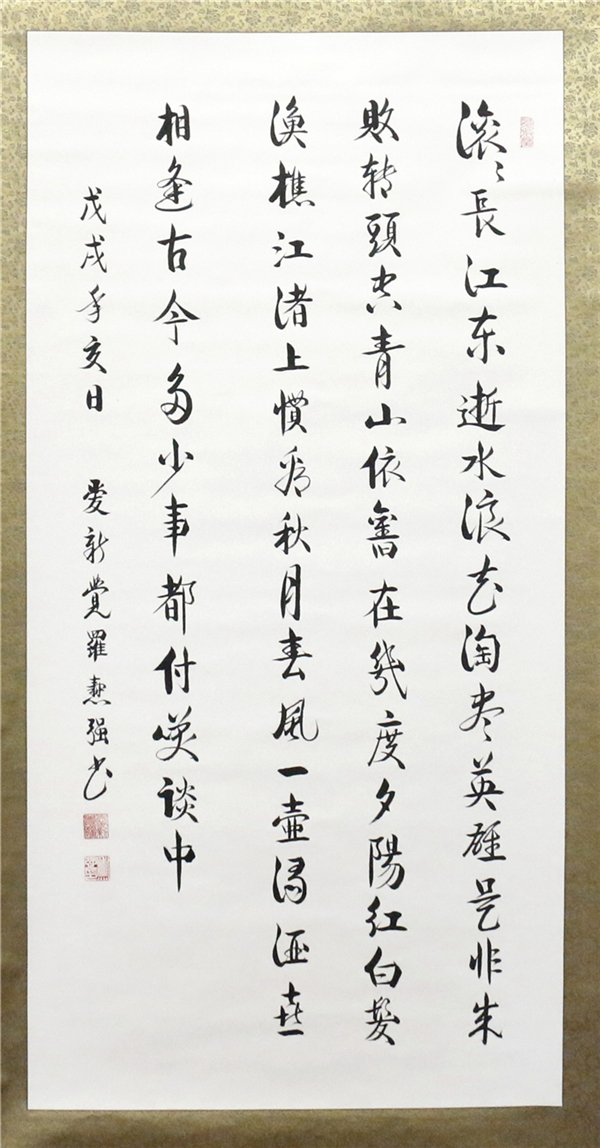 滚々長江东逝水浪花淘尽英雄是非成
敗转頭空青山依舊在幾度夕陽红白髮
渔樵江渚上慣看秋月春風一壺濁酒喜
相逢古今多少事都付笑谈中
戊戌年亥日 愛新覺羅 强书